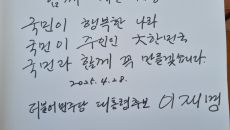 함께 사는 세상
국민이 행복한 나라
국민이 주인인 大한민국
국민과 함께 꼭 만들겠습니다.
2025. 4. 28.
더불어민주당 대통령후보 이재명